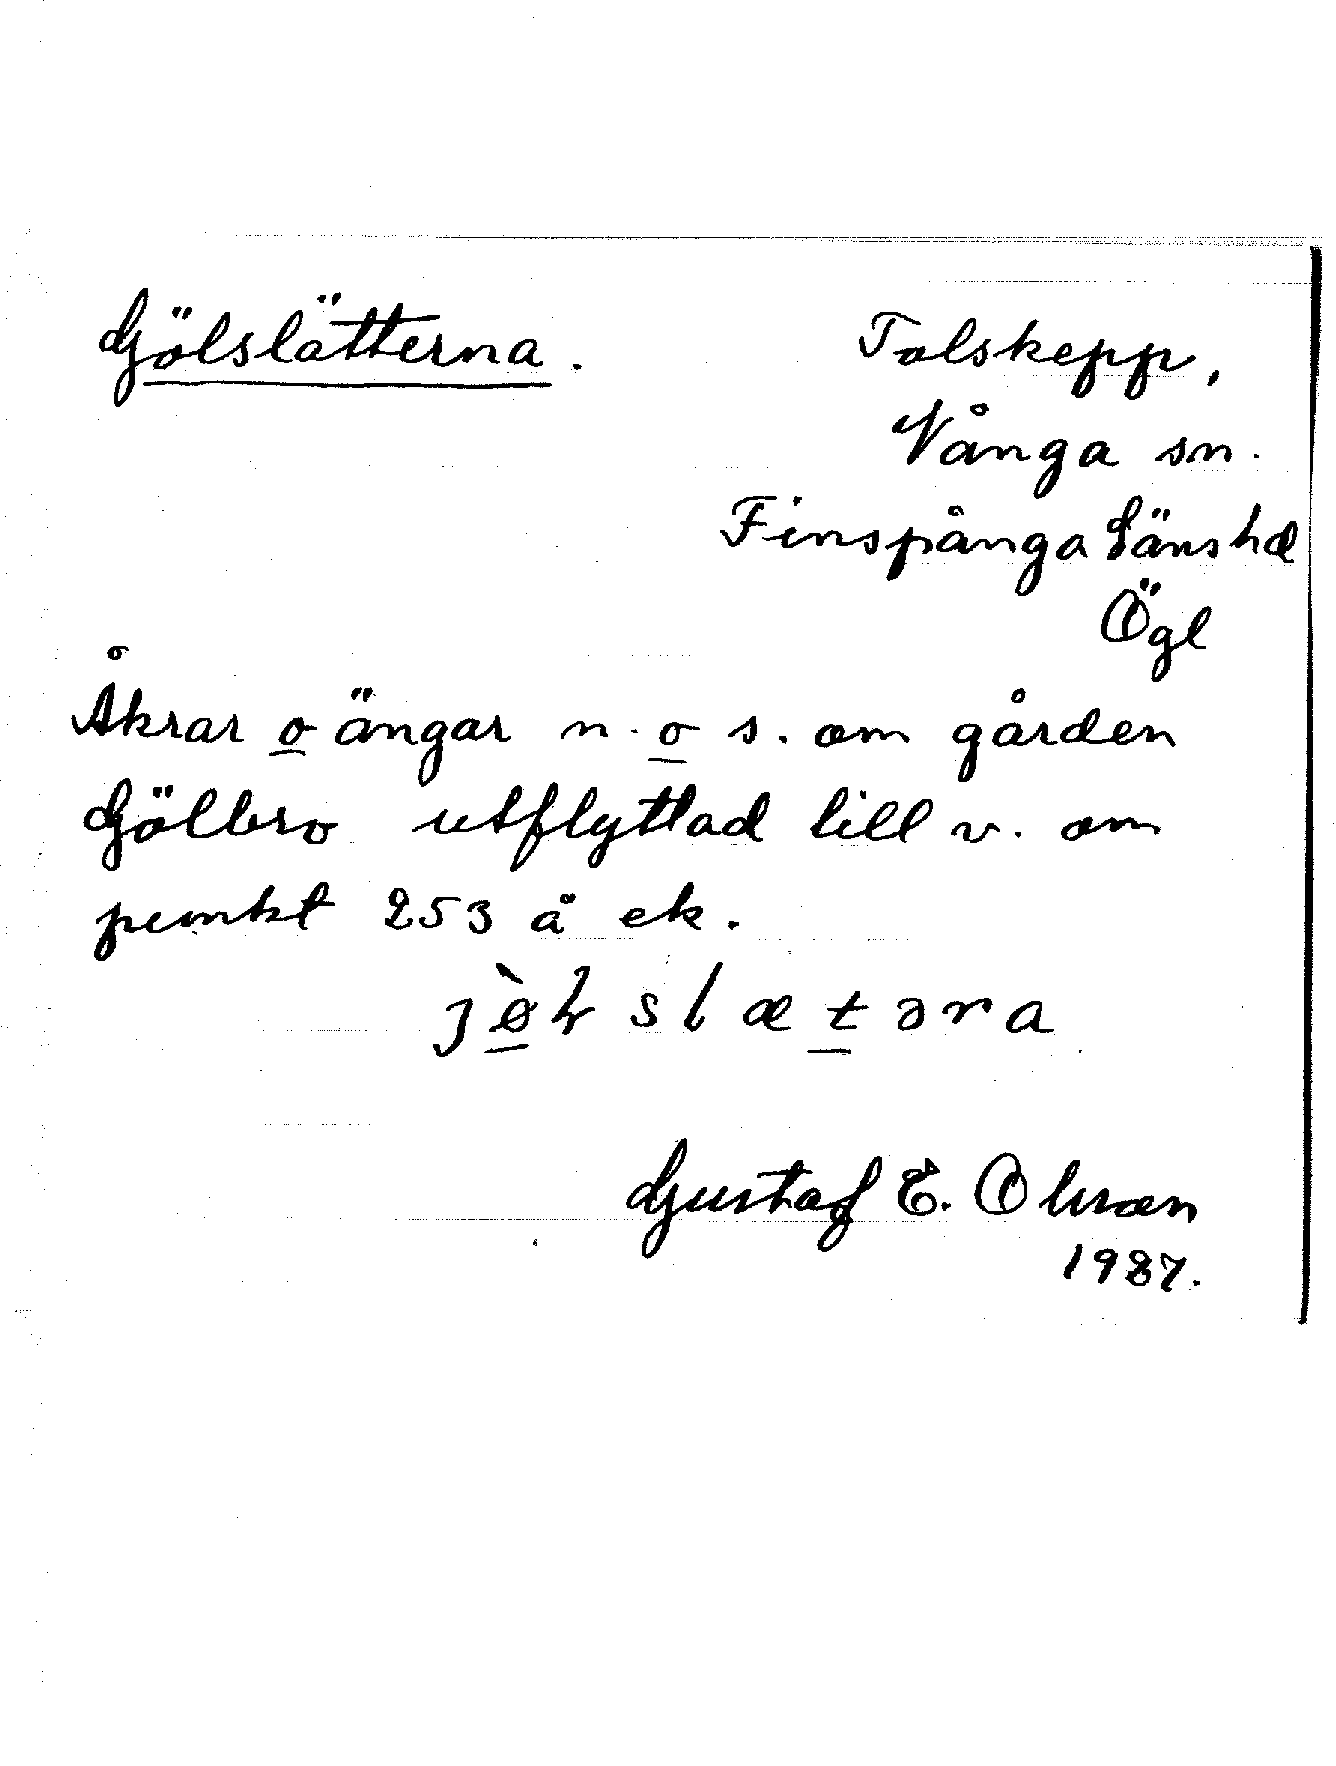 Gölslätterna. Tolskepp,
Vånga sn.
Finspånga Länshd
Ögl
Åkrar o ängar n. o s. om gården
Gölbro utflyttad till v. om
punkt 253 å ek.
jø̀ɫslætəra
Gustaf E. Olsson
1987.